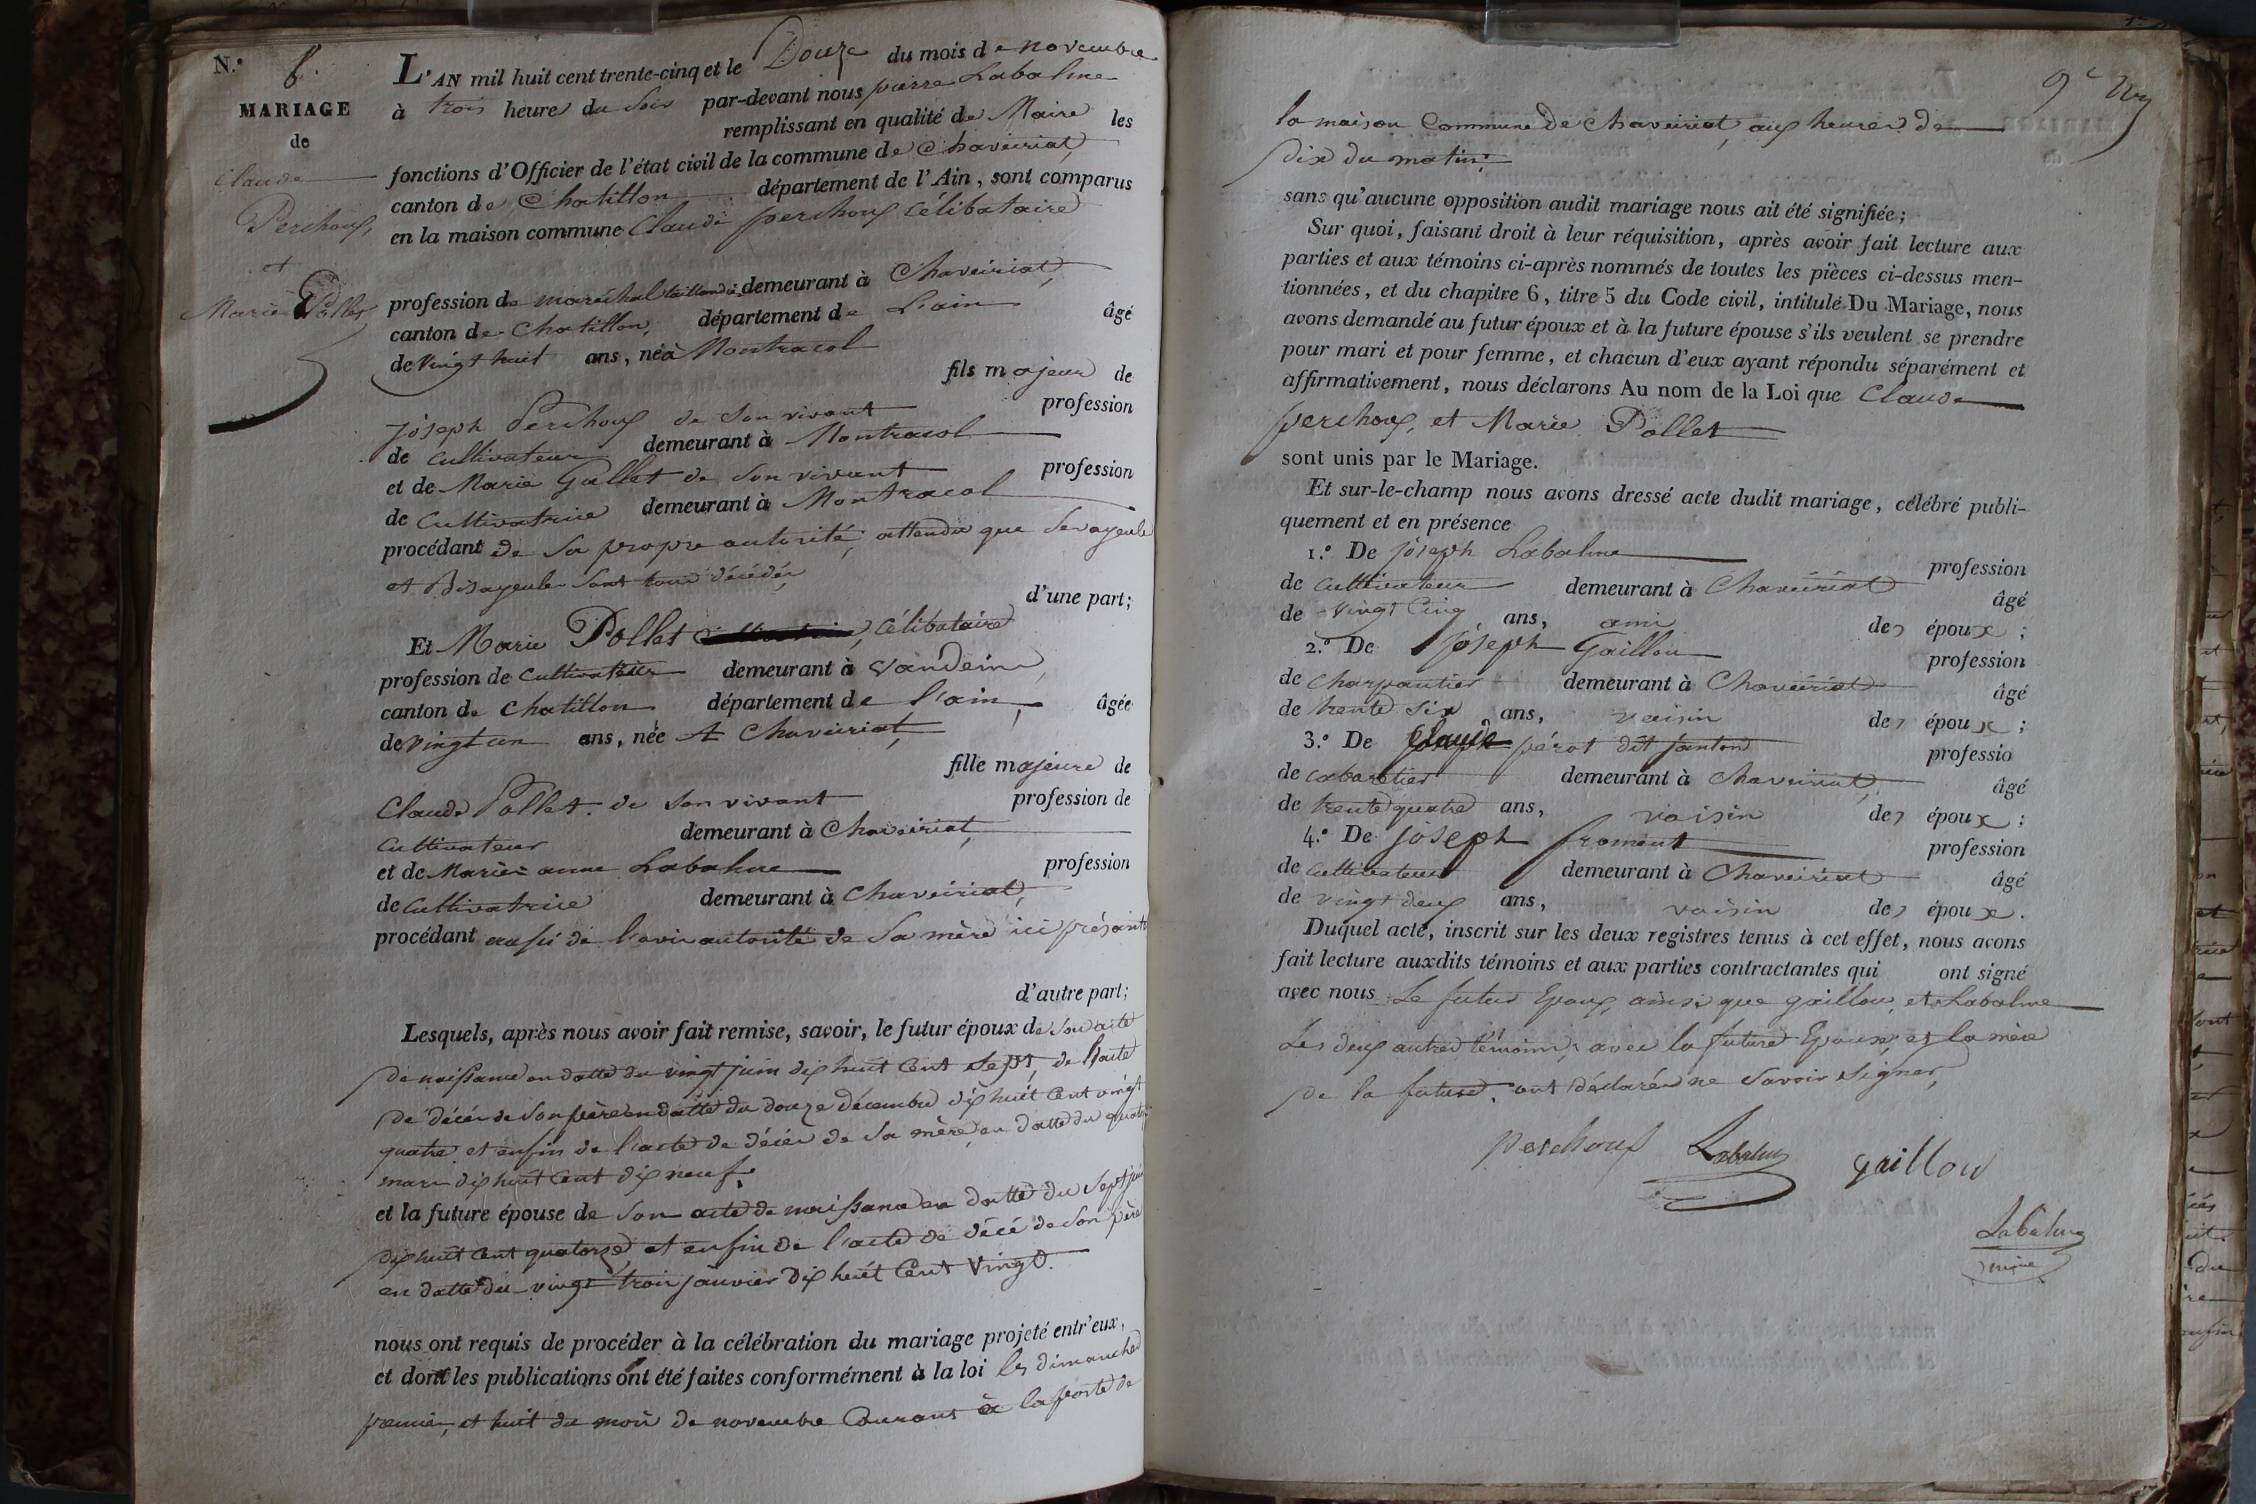 N.o 8.
MARIAGE
de
Claude
Perchoux,
et
Marie Pollet,
L'AN mil huit cent trente-cinq et le Douze du mois de novembre
à trois heures du soir par-devant nous pierre Labalme
remplissant en qualité de Maire les
fonctions d'Officier de l'état civil de la commune de Chaveiriat,
canton de Chatillon département de l'Ain, sont comparus
en la maison commune Claude perchoux célibataire
profession de maréchal taillandier demeurant à Chaveiriat,
canton de Chatillon, département de L'ain âgé
de vingt huit ans, né à Montracol
fils majeur de
joseph Perchoux de son vivant profession
de cultivateur demeurant à Montracol
et de Marie Gallet de son vivant profession
de Cultivatrice demeurant à Montracol
procédant de sa propre autorité, attendu que ses ayeuls
et Bisayeuls sont tous décédés
d'une part;
Et Marie Pollet célibataire
profession de cultivatrice demeurant à Vandeins
canton de chatillon département de l'ain, âgée
de vingt un ans, née A Chaveiriat,
fille majeure de
Claude Pollet de son vivant profession de
Cultivateur demeurant à Chaveiriat,
et de Marie=anne Labalme profession
de Cultivatrice demeurant à Chaveiriat,
procédant aussi de l'avis autorité de sa mère ici présante
d'autre part;
Lesquels, après nous avoir fait remise, savoir, le futur époux de son acte
de naissance en datte du vingt juin dix huit cent sept, de l'acte
de décès de son père en datte du douze décembre dix huit cent vingt
quatre et enfin de l'acte de décès de sa mère en datte du quatre
mars dix huit cent dix neuf.
et la future épouse de son acte de naissance en datte du sept juin
dix huit cent quatorze et enfin de l'acte de décé de son père
en datte du vingt trois janvier dix huit cent vingt.
nous ont requis de procéder à la célébration du mariage projeté entr'eux,
et dont les publications ont été faites conformément à la loi les dimanches
premier, et huit du mois de novembre Courant à la porte de
9e
la maison Commune de Chaveiriat, aux heures de
dix du matin.
sans qu'aucune opposition audit mariage nous ait été signifiée;
Sur quoi, faisant droit à leur réquisition, après avoir fait lecture aux
parties et aux témoins ci-après nommés de toutes les pièces ci-dessus men-
tionnées, et du chapitre 6, titre 5 du Code civil, intitulé Du Mariage, nous
avons demandé au futur époux et à la future épouse s'ils veulent se prendre
pour mari et pour femme, et chacun d'eux ayant répondu séparément et
affirmativement, nous déclarons Au nom de la Loi que Claude
perchoux, et Marie Pollet
sont unis par le Mariage.
Et sur-le-champ nous avons dressé acte dudit mariage, célébré publi-
quement et en présence
1.o De joseph Labalme profession
de cultivateur demeurant à Chaveiriat âgé
de vingt cinq ans, ami des époux;
2.o De joseph Gaillon profession
de charpantier demeurant à Chaveiriat âgé
de trente six ans, voisin des époux;
3.o De Claude pérat dit janton professio
de cabaretier demeurant à Chaveiriat, âgé
de trente quatre ans, voisin des époux;
4.o De joseph froment profession
de cultivateur demeurant à Chaveiriat âgé
de vingt deux ans, voisin des époux.
Duquel acte, inscrit sur les deux registres tenus à cet effet, nous avons
fait lecture auxdits témoins et aux parties contractantes qui ont signé
avec nous Le futur Epoux, ainsi que gaillon, et Labalme
Les deux autres témoins, avec la future Epouse, et la mère
de la future, ont déclarés ne savoir signer,
perchoux Labalme gaillon
Labalme
maire